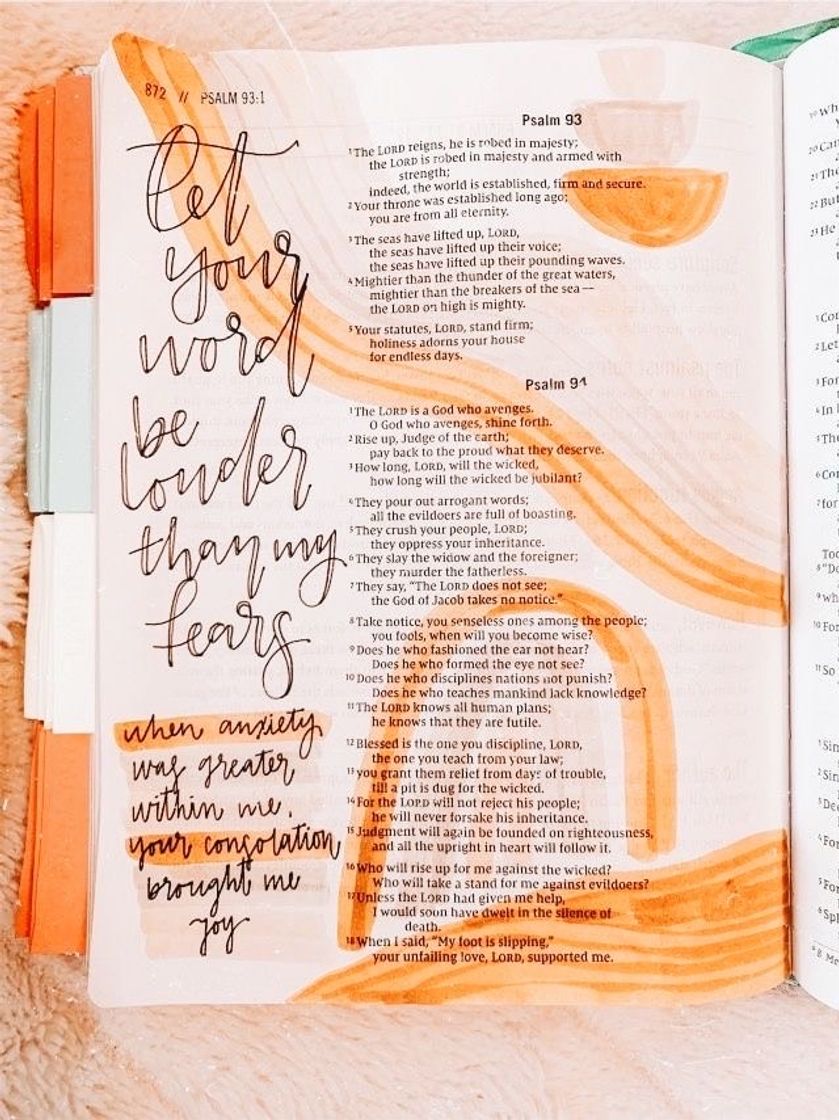 872 // PSALM 93:1
let
your
word
be
louder
than my
fears
when anxiety
was greater
within me,
your consolation
brought me
joy
Psalm 93
1The LORD reigns, he is robed in majesty;
the LORD is robed in majesty and armed with
strength;
indeed, the world is established, firm and secure.
2Your throne was established long ago;
you are from all eternity.
3The seas have lifted up, LORD,
the seas have lifted up their voice;
the seas have lifted up their pounding waves.
4Mightier than the thunder of the great waters,
mightier than the breakers of the sea —
the LORD on high is mighty.
5Your statutes, LORD, stand firm;
holiness adorns your house
for endless days.
Psalm 94
1The LORD is a God who avenges.
O God who avenges, shine forth.
2Rise up, Judge of the earth;
pay back to the proud what they deserve.
3How long, LORD, will the wicked,
how long will the wicked be jubilant?
4They pour out arrogant words;
all the evildoers are full of boasting.
5They crush your people, LORD;
they oppress your inheritance.
6They slay the widow and the foreigner;
they murder the fatherless.
7They say, “The LORD does not see;
the God of Jacob takes no notice.”
8Take notice, you senseless ones among the people;
you fools, when will you become wise?
9Does he who fashioned the ear not hear?
Does he who formed the eye not see?
10Does he who disciplines nations not punish?
Does he who teaches mankind lack knowledge?
11The LORD knows all human plans;
he knows that they are futile.
12Blessed is the one you discipline, LORD,
the one you teach from your law;
13you grant them relief from days of trouble,
till a pit is dug for the wicked.
14For the LORD will not reject his people;
he will never forsake his inheritance.
15Judgment will again be founded on righteousness,
and all the upright in heart will follow it.
16Who will rise up for me against the wicked?
Who will take a stand for me against evildoers?
17Unless the LORD had given me help,
I would soon have dwelt in the silence of
death.
18When I said, “My foot is slipping,”
your unfailing love, LORD, supported me.